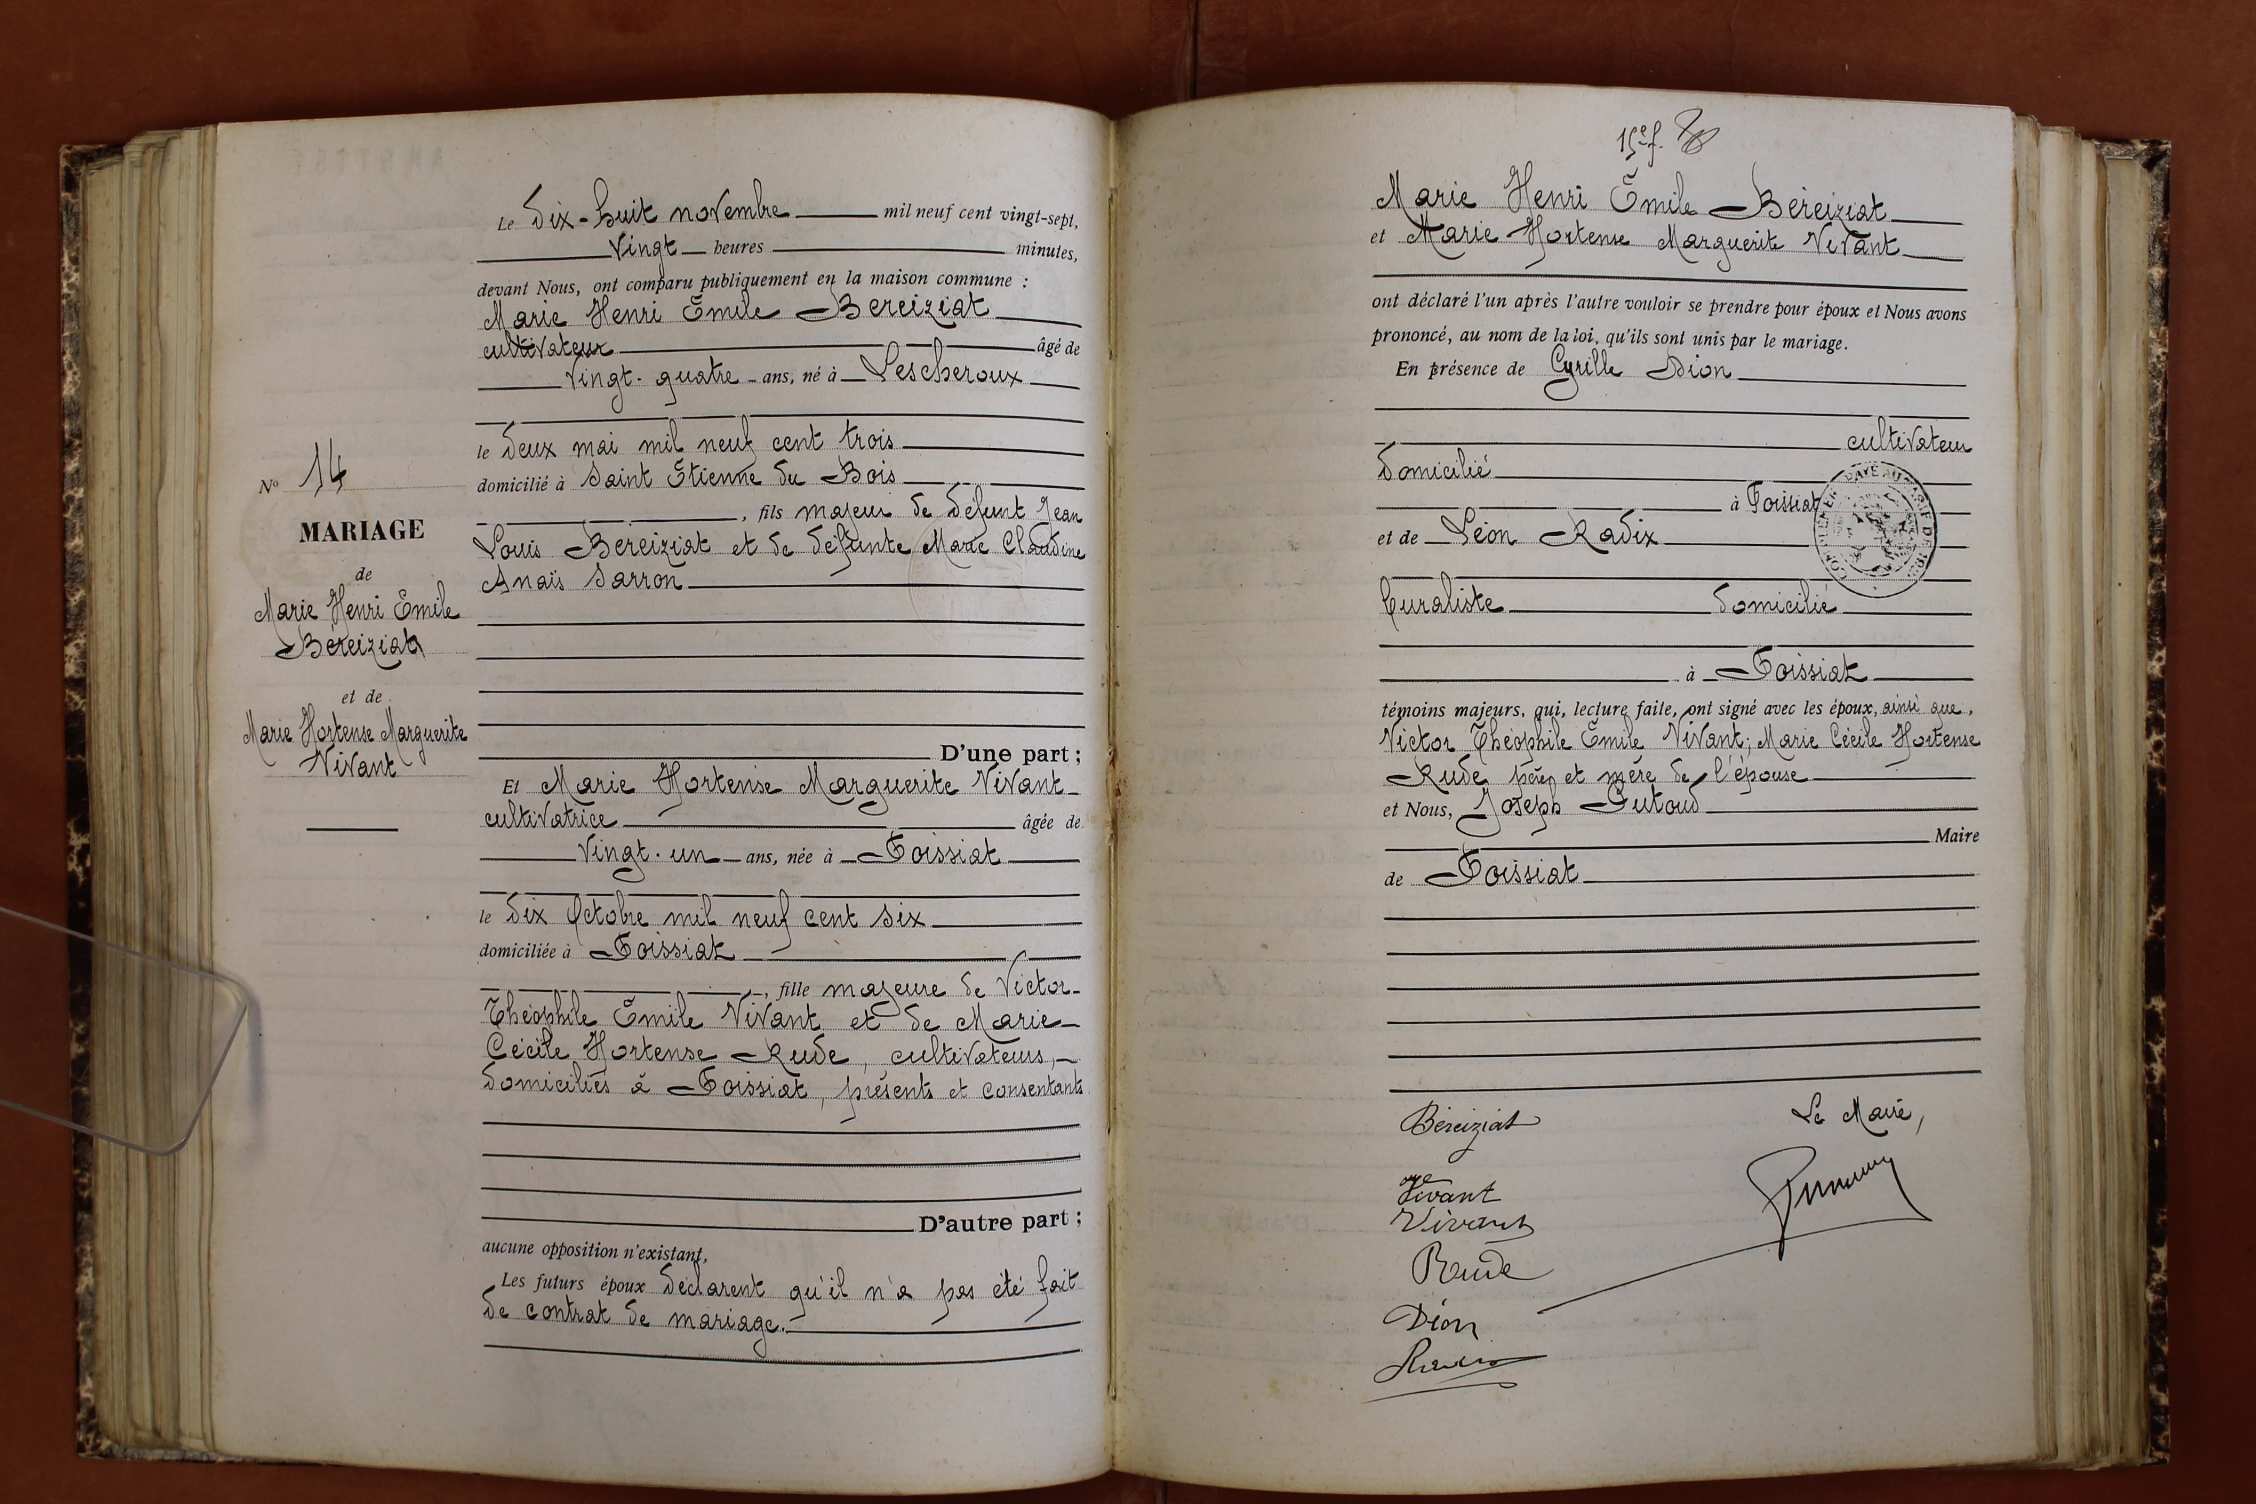 Le dix-huit novembre mil neuf cent vingt-sept,
vingt heures minutes,
devant Nous, ont comparu publiquement en la maison commune :
Marie Henri Emile Béreiziat
cultivateur âgé de
vingt-quatre ans, né à Lescheroux
le deux mai mil neuf cent trois
domicilié à Saint Etienne du Bois
, fils majeur de défunt Jean
Louis Béreiziat et de défunte Marie Claudine
Anaïs Sarron
D'une part ;
Et Marie Hortense Marguerite Vivant
cultivatrice âgée de
vingt-un ans, née à Foissiat
le dix Octobre mil neuf cent six
domiciliée à Foissiat
, fille majeure de Victor
Théophile Emile Vivant et de Marie
Cécile Hortense Rude, cultivateurs,
domiciliés à Foissiat, présents et consentants
D'autre part ;
aucune opposition n'existant,
Les futurs époux déclarent qu'il n'a pas été fait
de contrat de mariage.
No 14
MARIAGE
de
Marie Henri Emile
Béreiziat
et de
Marie Hortense Marguerite
Vivant
15e f.
Marie Henri Emile Béreiziat
et Marie Hortense Marguerite Vivant
ont déclaré l'un après l'autre vouloir se prendre pour époux et Nous avons
prononcé, au nom de la loi, qu'ils sont unis par le mariage.
En présence de Cyrille Dion
cultivateur
domicilié
à Foissiat
et de Léon Radix
buraliste domicilié
à Foissiat
témoins majeurs, qui, lecture faite, ont signé avec les époux, ainsi que,
Victor Théophile Emile Vivant; Marie Cécile Hortense
Rude, père et mère de l'épouse
et Nous, Joseph Putoud
Maire
de Foissiat
Béreiziat
Le Maire,
Vivant
Vivant
Rude
Dion